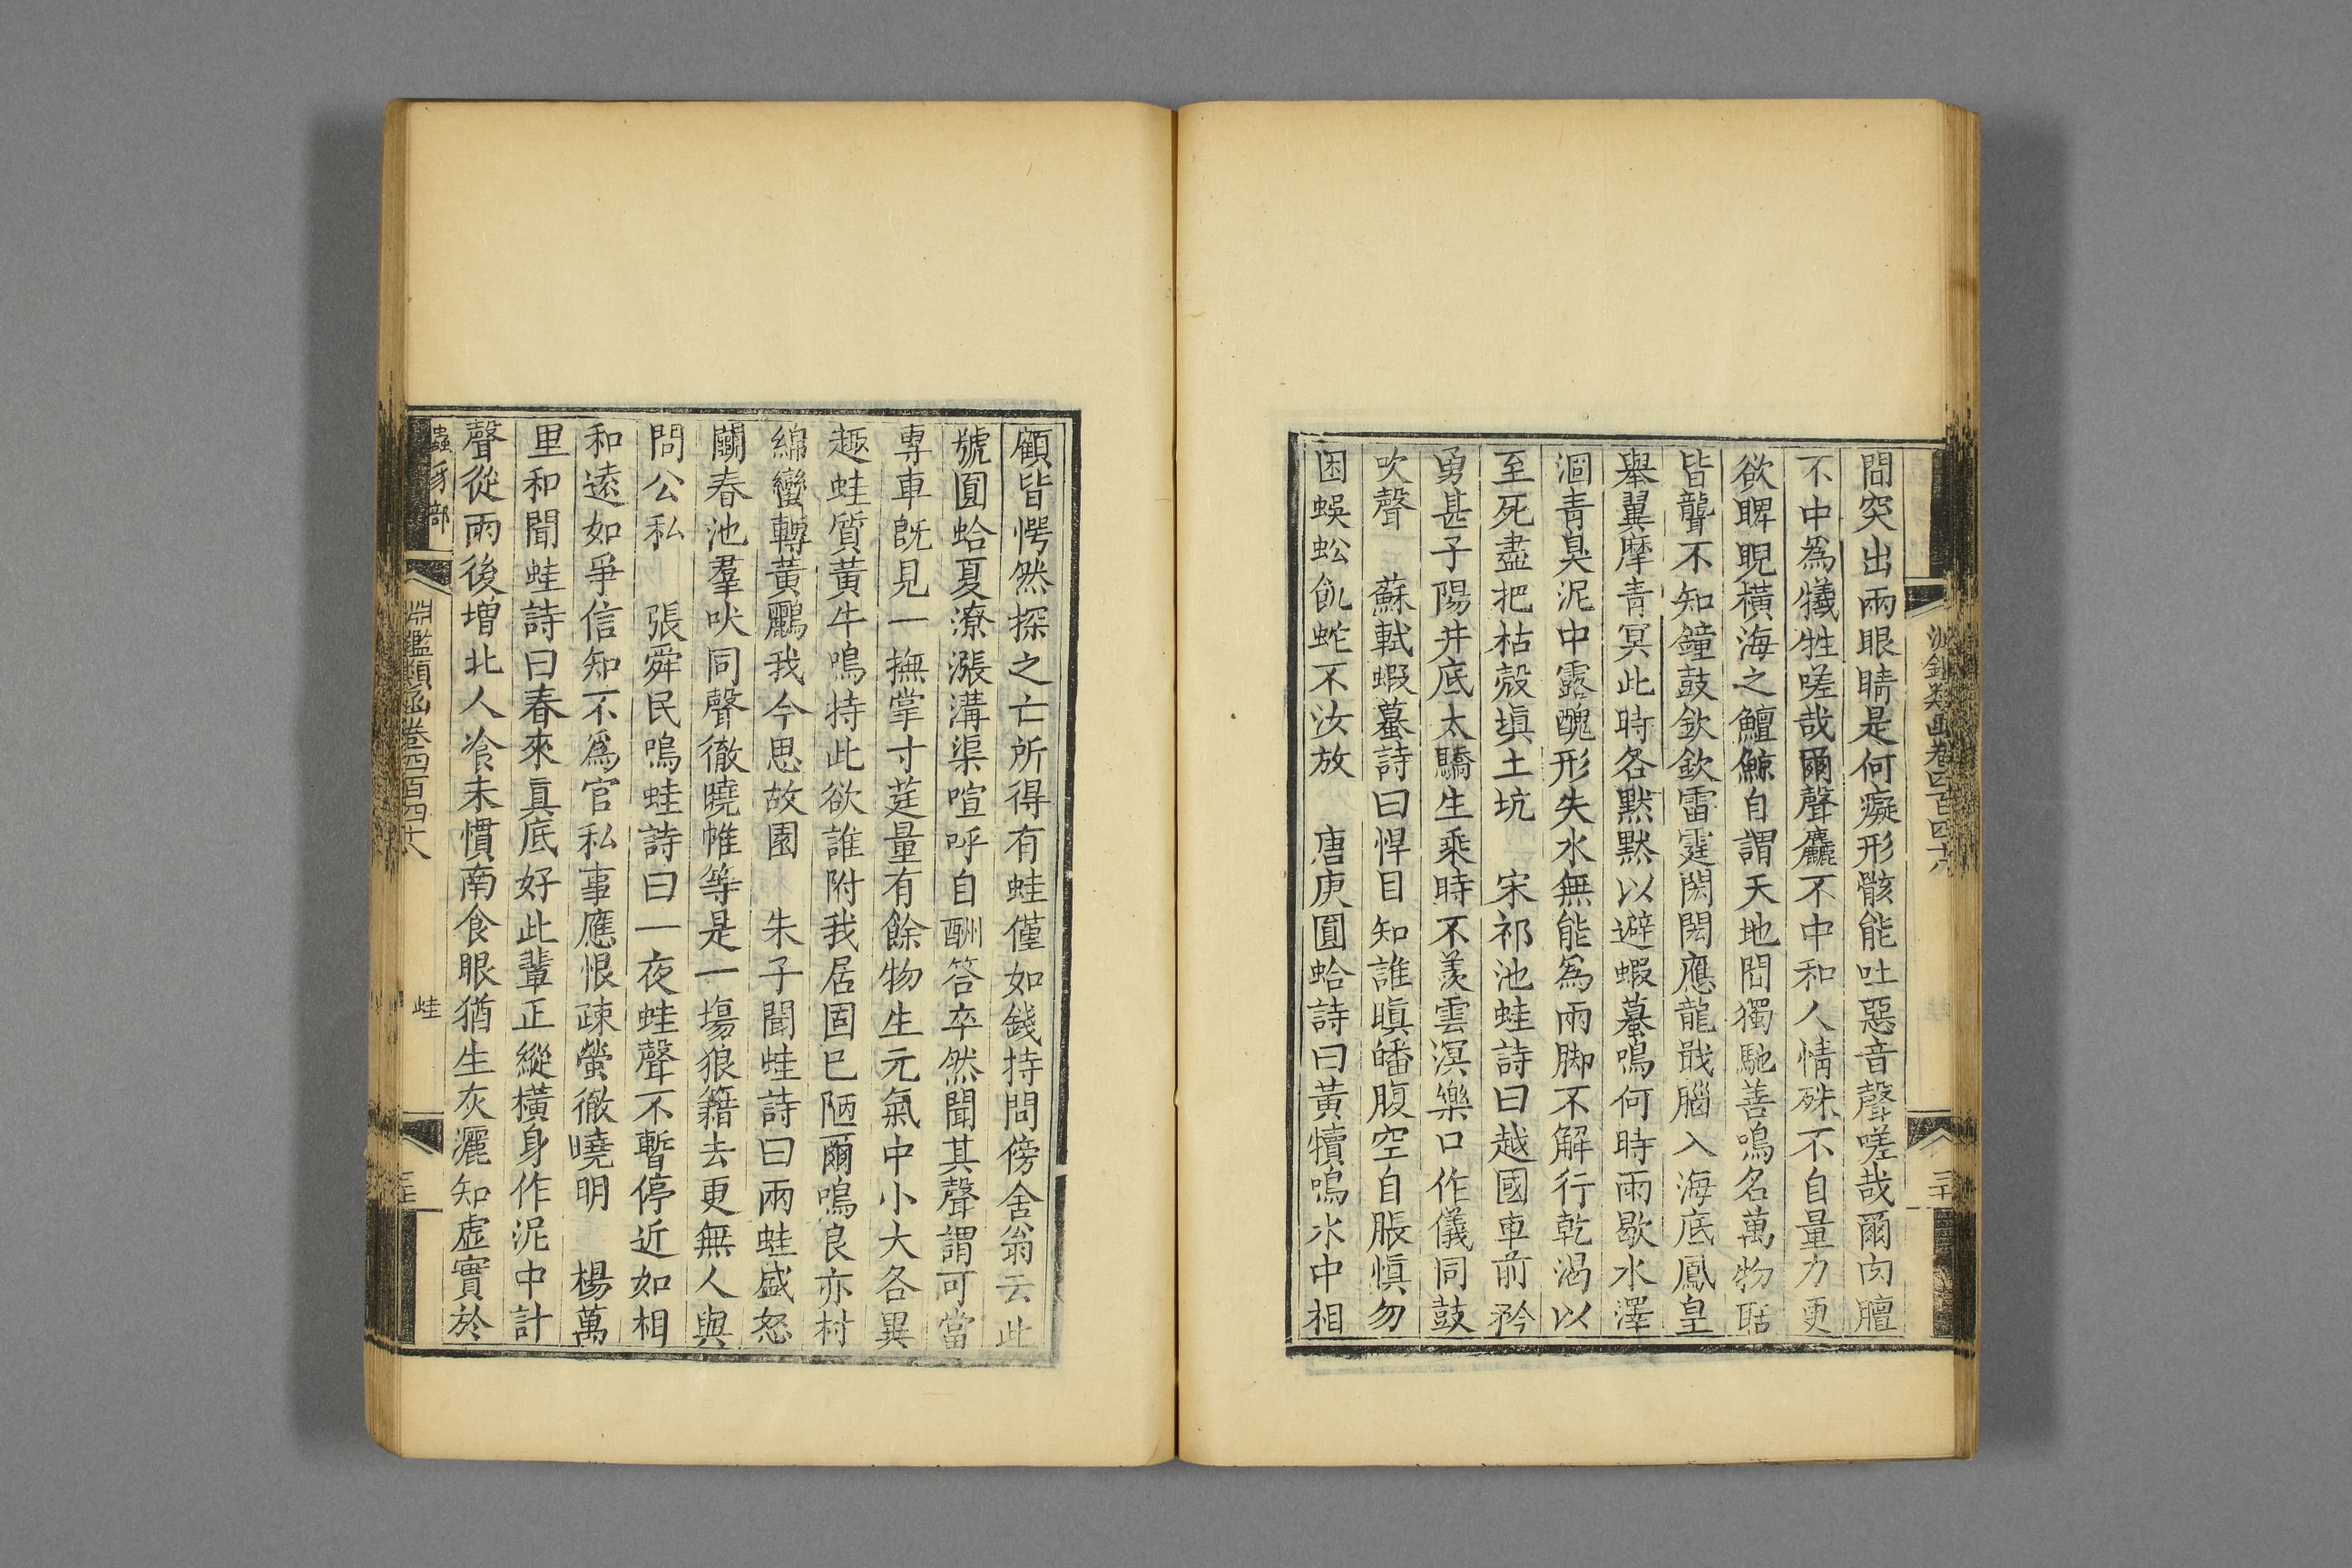 問突出兩眼睛是何癡形骸能吐惡音聲嗟哉爾肉膻
不中為犧牲嗟哉爾聲麤不中和人情殊不自量力更
欲睥睨橫海之鱣鯨自謂天地間獨馳善鳴名萬物聒
皆聾不知鐘鼓欽欽雷霆閎閎應龍戢腦入海底鳳皇
舉翼摩青冥此時各默默以避蝦蟇鳴何時雨歇水澤
涸青臭泥中露醜形失水無能為雨脚不解行乾渴以
至死盡把枯殼塡土坑　宋祁池蛙詩曰越國車前矜
勇甚子陽井底太驕生乘時不羨雲溟樂口作儀同鼓
吹聲　蘇軾蝦蟇詩曰悍目知誰瞋皤腹空自脹愼勿
困蜈蚣飢蛇不汝放　唐庚圓蛤詩曰黃犢鳴水中相
顧皆愕然探之亡所得有蛙僅如錢持問傍舍翁云此
號圓蛤夏潦漲溝渠喧呼自酬答卒然聞其聲謂可當
專車旣見一撫掌寸莛量有餘物生元氣中小大各異
趣蛙質黃牛鳴持此欲誰附我居固已陋爾鳴良亦村
綿蠻轉黃鸝我今思故園　朱子聞蛙詩曰兩蛙盛怒
鬭春池羣吠同聲徹曉帷等是一場狼籍去更無人與
問公私　張舜民鳴蛙詩曰一夜蛙聲不暫停近如相
和遠如爭信知不為官私事應恨疎螢徹曉明　楊萬
里和聞蛙詩曰春來眞底好此輩正縱橫身作泥中計
聲從雨後增北人飡未慣南食眼猶生灰灑知虛實於
蟲豸部
淵鑑類函卷四百四十八
蛙